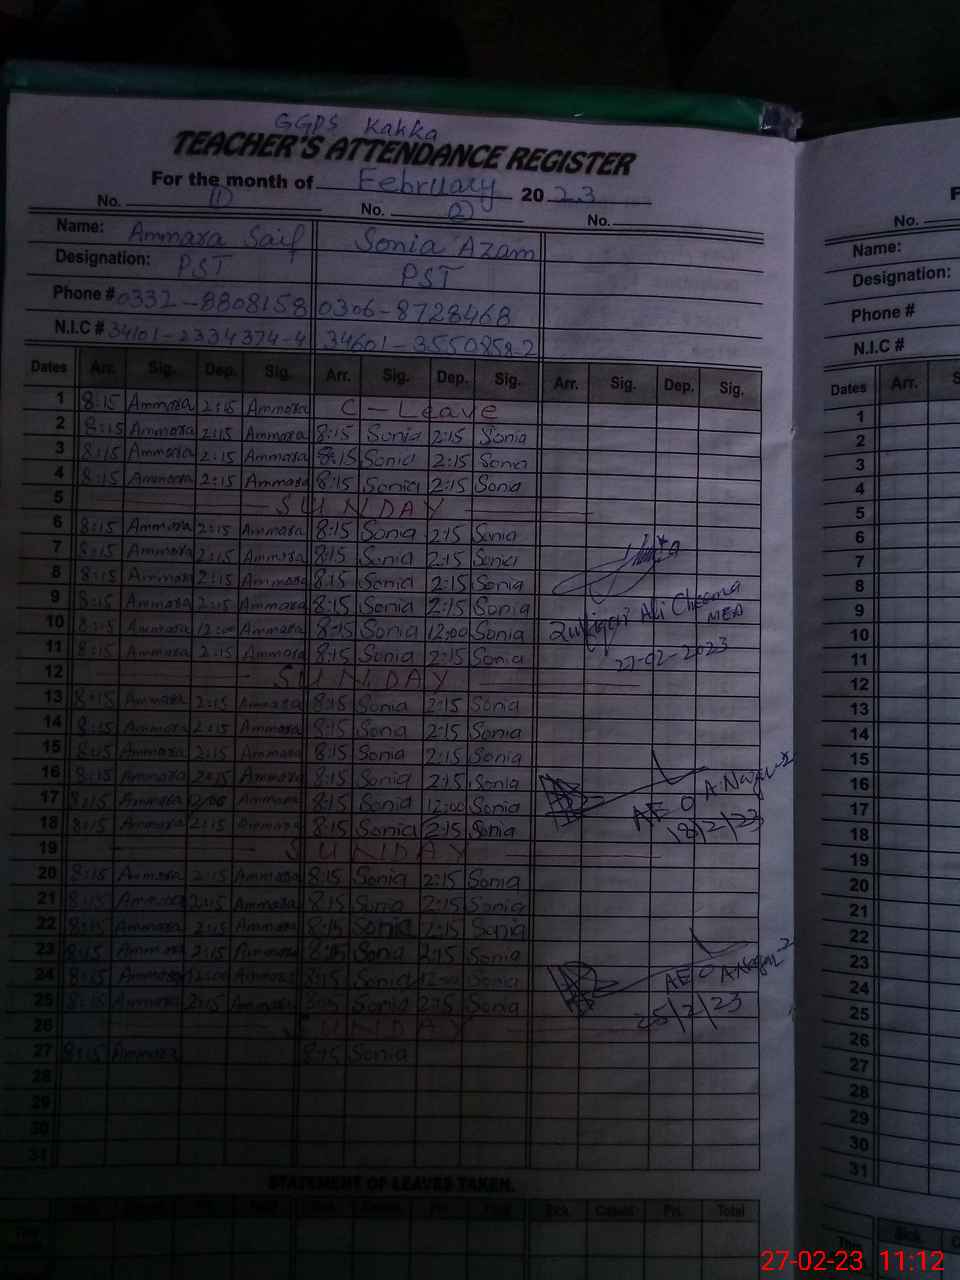 GGPS Kakka
TEACHER'S ATTENDANCE REGISTER
For the month of February 2023
No. (1) No. (2) No.
Name: Ammara Saif Sonia Azam
Designation: PST PST
Phone # 0332-8808158 0306-8728468
N.I.C # 34101-2334374-4 34601-3550858-2
Dates Arr. Sig. Dep. Sig. Arr. Sig. Dep. Sig. Arr. Sig. Dep. Sig.
1 8:15 Ammara 2:15 Ammara C-Leave
2 8:15 Ammara 2:15 Ammara 8:15 Sonia 2:15 Sonia
3 8:15 Ammara 2:15 Ammara 8:15 Sonia 2:15 Sonia
4 8:15 Ammara 2:15 Ammara 8:15 Sonia 2:15 Sonia
5 SUNDAY
6 8:15 Ammara 2:15 Ammara 8:15 Sonia 2:15 Sonia
7 8:15 Ammara 2:15 Ammara 8:15 Sonia 2:15 Sonia
8 8:15 Ammara 2:15 Ammara 8:15 Sonia 2:15 Sonia
9 8:15 Ammara 2:15 Ammara 8:15 Sonia 2:15 Sonia
Ali Cheema
MEA
10 8:15 Ammara 12:00 Ammara 8:15 Sonia 12:00 Sonia
11 8:15 Ammara 2:15 Ammara 8:15 Sonia 2:15 Sonia
27-02-2023
12 SUNDAY
13 8:15 Ammara 2:15 Ammara 8:15 Sonia 2:15 Sonia
14 8:15 Ammara 2:15 Ammara 8:15 Sonia 2:15 Sonia
15 8:15 Ammara 2:15 Ammara 8:15 Sonia 2:15 Sonia
16 8:15 Ammara 2:15 Ammara 8:15 Sonia 2:15 Sonia
17 8:15 Ammara 12:00 Ammara 8:15 Sonia 12:00 Sonia
AEO
18 8:15 Ammara 2:15 Ammara 8:15 Sonia 2:15 Sonia
18/2/23
19 SUNDAY
20 8:15 Ammara 2:15 Ammara 8:15 Sonia 2:15 Sonia
21 8:15 Ammara 2:15 Ammara 8:15 Sonia 2:15 Sonia
22 8:15 Ammara 2:15 Ammara 8:15 Sonia 2:15 Sonia
23 8:15 Ammara 2:15 Ammara 8:15 Sonia 2:15 Sonia
24 8:15 Ammara 12:00 Ammara 8:15 Sonia 12:00 Sonia
AEO
25 8:15 Ammara 2:15 Ammara 8:15 Sonia 2:15 Sonia
25/2/23
26 SUNDAY
27 8:15 Ammara 8:15 Sonia
28
29
30
31
STATEMENT OF LEAVES TAKEN.
Sick. Casual. Pri. Total
No.
Name:
Designation:
Phone #
N.I.C #
Dates Arr.
1
2
3
4
5
6
7
8
9
10
11
12
13
14
15
16
17
18
19
20
21
22
23
24
25
26
27
28
29
30
31
Sick.
27-02-23 11:12